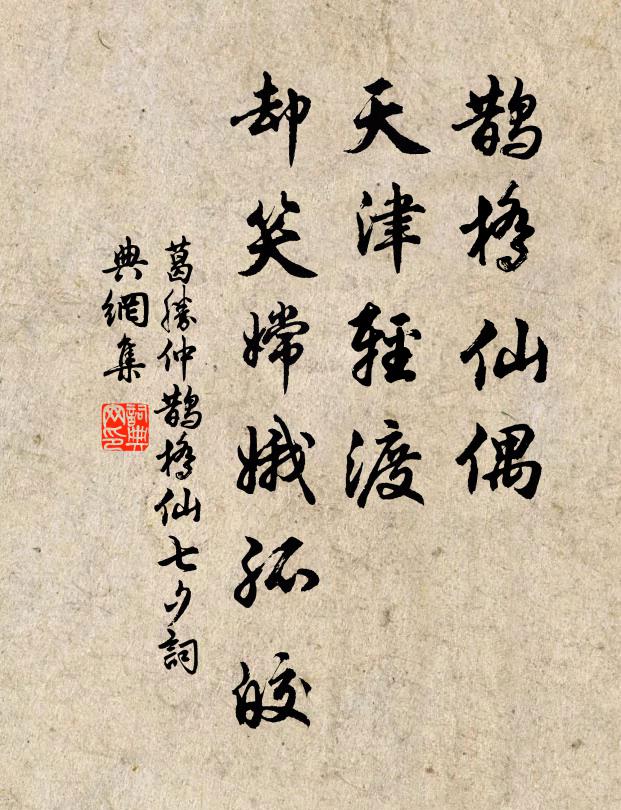 鹊橋仙偶
天津輕渡
却笑嫦娥孤皎
葛勝仲鹊橋仙七夕詞
典網集
詞典網印